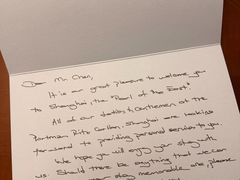 Dear Mr. Chen,
It is our great pleasure to welcome you
to Shanghai, the "Pearl of the East".
All of our Ladies & Gentlemen at the
Portman Ritz-Carlton, Shanghai are looking
forward to providing personal service to you.
We hope you will enjoy your stay with
us. Should there be anything that we can
your stay memorable, please